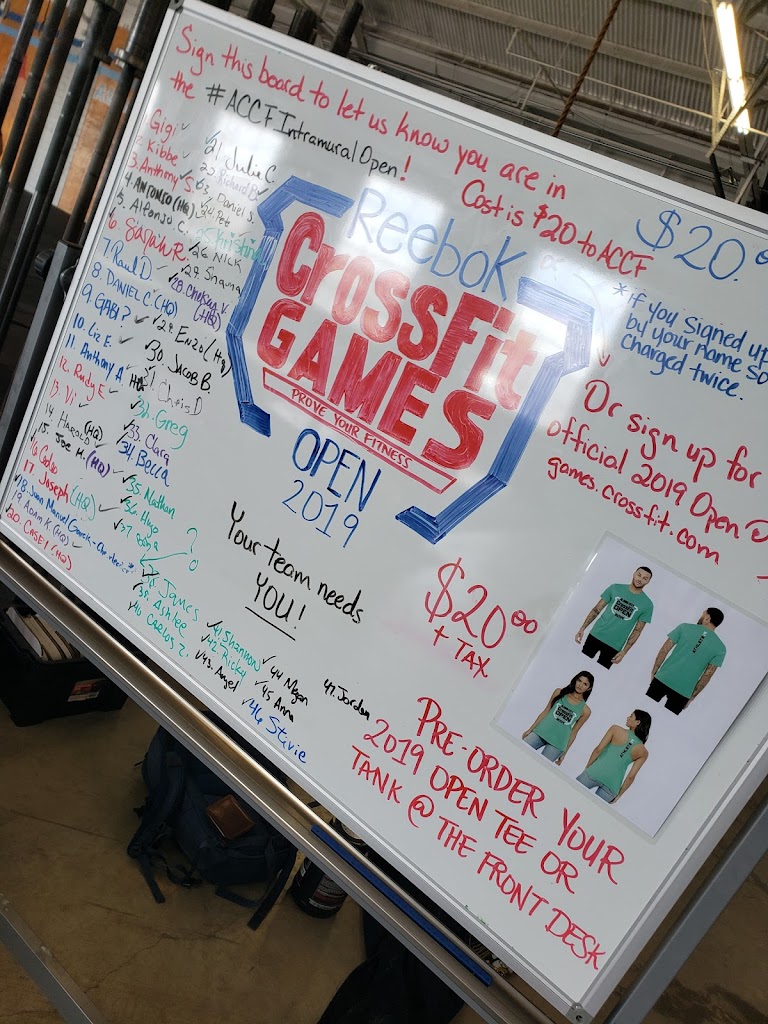 Sign this board to let us know you are in
the #ACCFIntramuralOpen!
Cost is $20 to ACCF
$20.00
*if you signed up
by your name so
charged twice.
Or sign up for
official 2019 Open
games.crossfit.com
Reebok
CrossFit
GAMES
PROVE YOUR FITNESS
OPEN
2019
Your team needs
YOU!
$20.00
+ TAX
PRE-ORDER YOUR
2019 OPEN TEE OR
TANK @ THE FRONT DESK
Gigi
2. Kibbe
3. Anthony S.
5. Alfonso C.
6. Sarah R.
7. Raul D
8. DANIEL C. (HQ)
9. GABI?
10. Liz E.
11. Anthony A
12. Rudy E
13. Vi
14. Harold (HQ)
15. Joe M. (HQ)
17. Joseph (HQ)
19. ADAM K. (HQ)
20. CASEY (HQ)
21. Julie C
23. Daniel J
24. Pete
25. Kristina
26 NICK
27. Shawna
28. Chelsey V. (HQ)
29. Enzo (HQ)
30 JACOB B.
Chris D
32. Greg
33. Clara
34. Becca
35 Nathan
36 Hugo
37
?
James
39. Ashlee
40 Carlos Z.
41 Shannon
42. Ricky
43. Angel
44 Megan
45 Anna
46 Stevie
47. Jordan